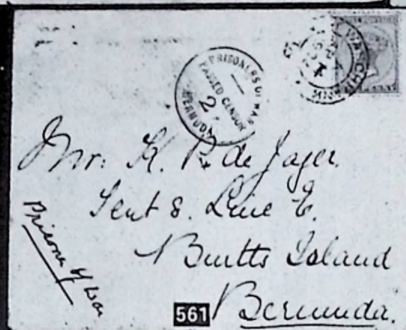 PRISONERS OF WAR
PASSED CENSOR
2
BERMUDA
Mr. K. P. de Jager.
Tent 8. Line E.
Burtts Island
Bermunda.
Prisoner of War
561